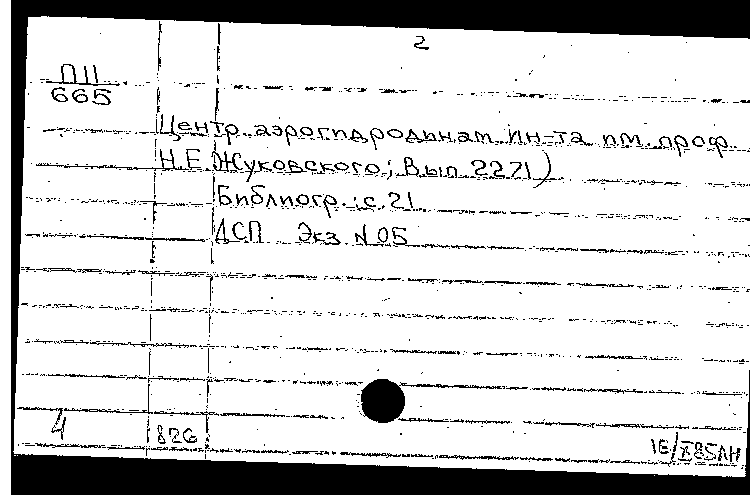 2
П11
665
Центр. аэрогидродинам. ин-та им. проф.
Н.Е.Жуковского; Вып. 2271)
Библиогр.: с. 21
ДСП Экз. N 05
4
82G
1E/X85ЛН